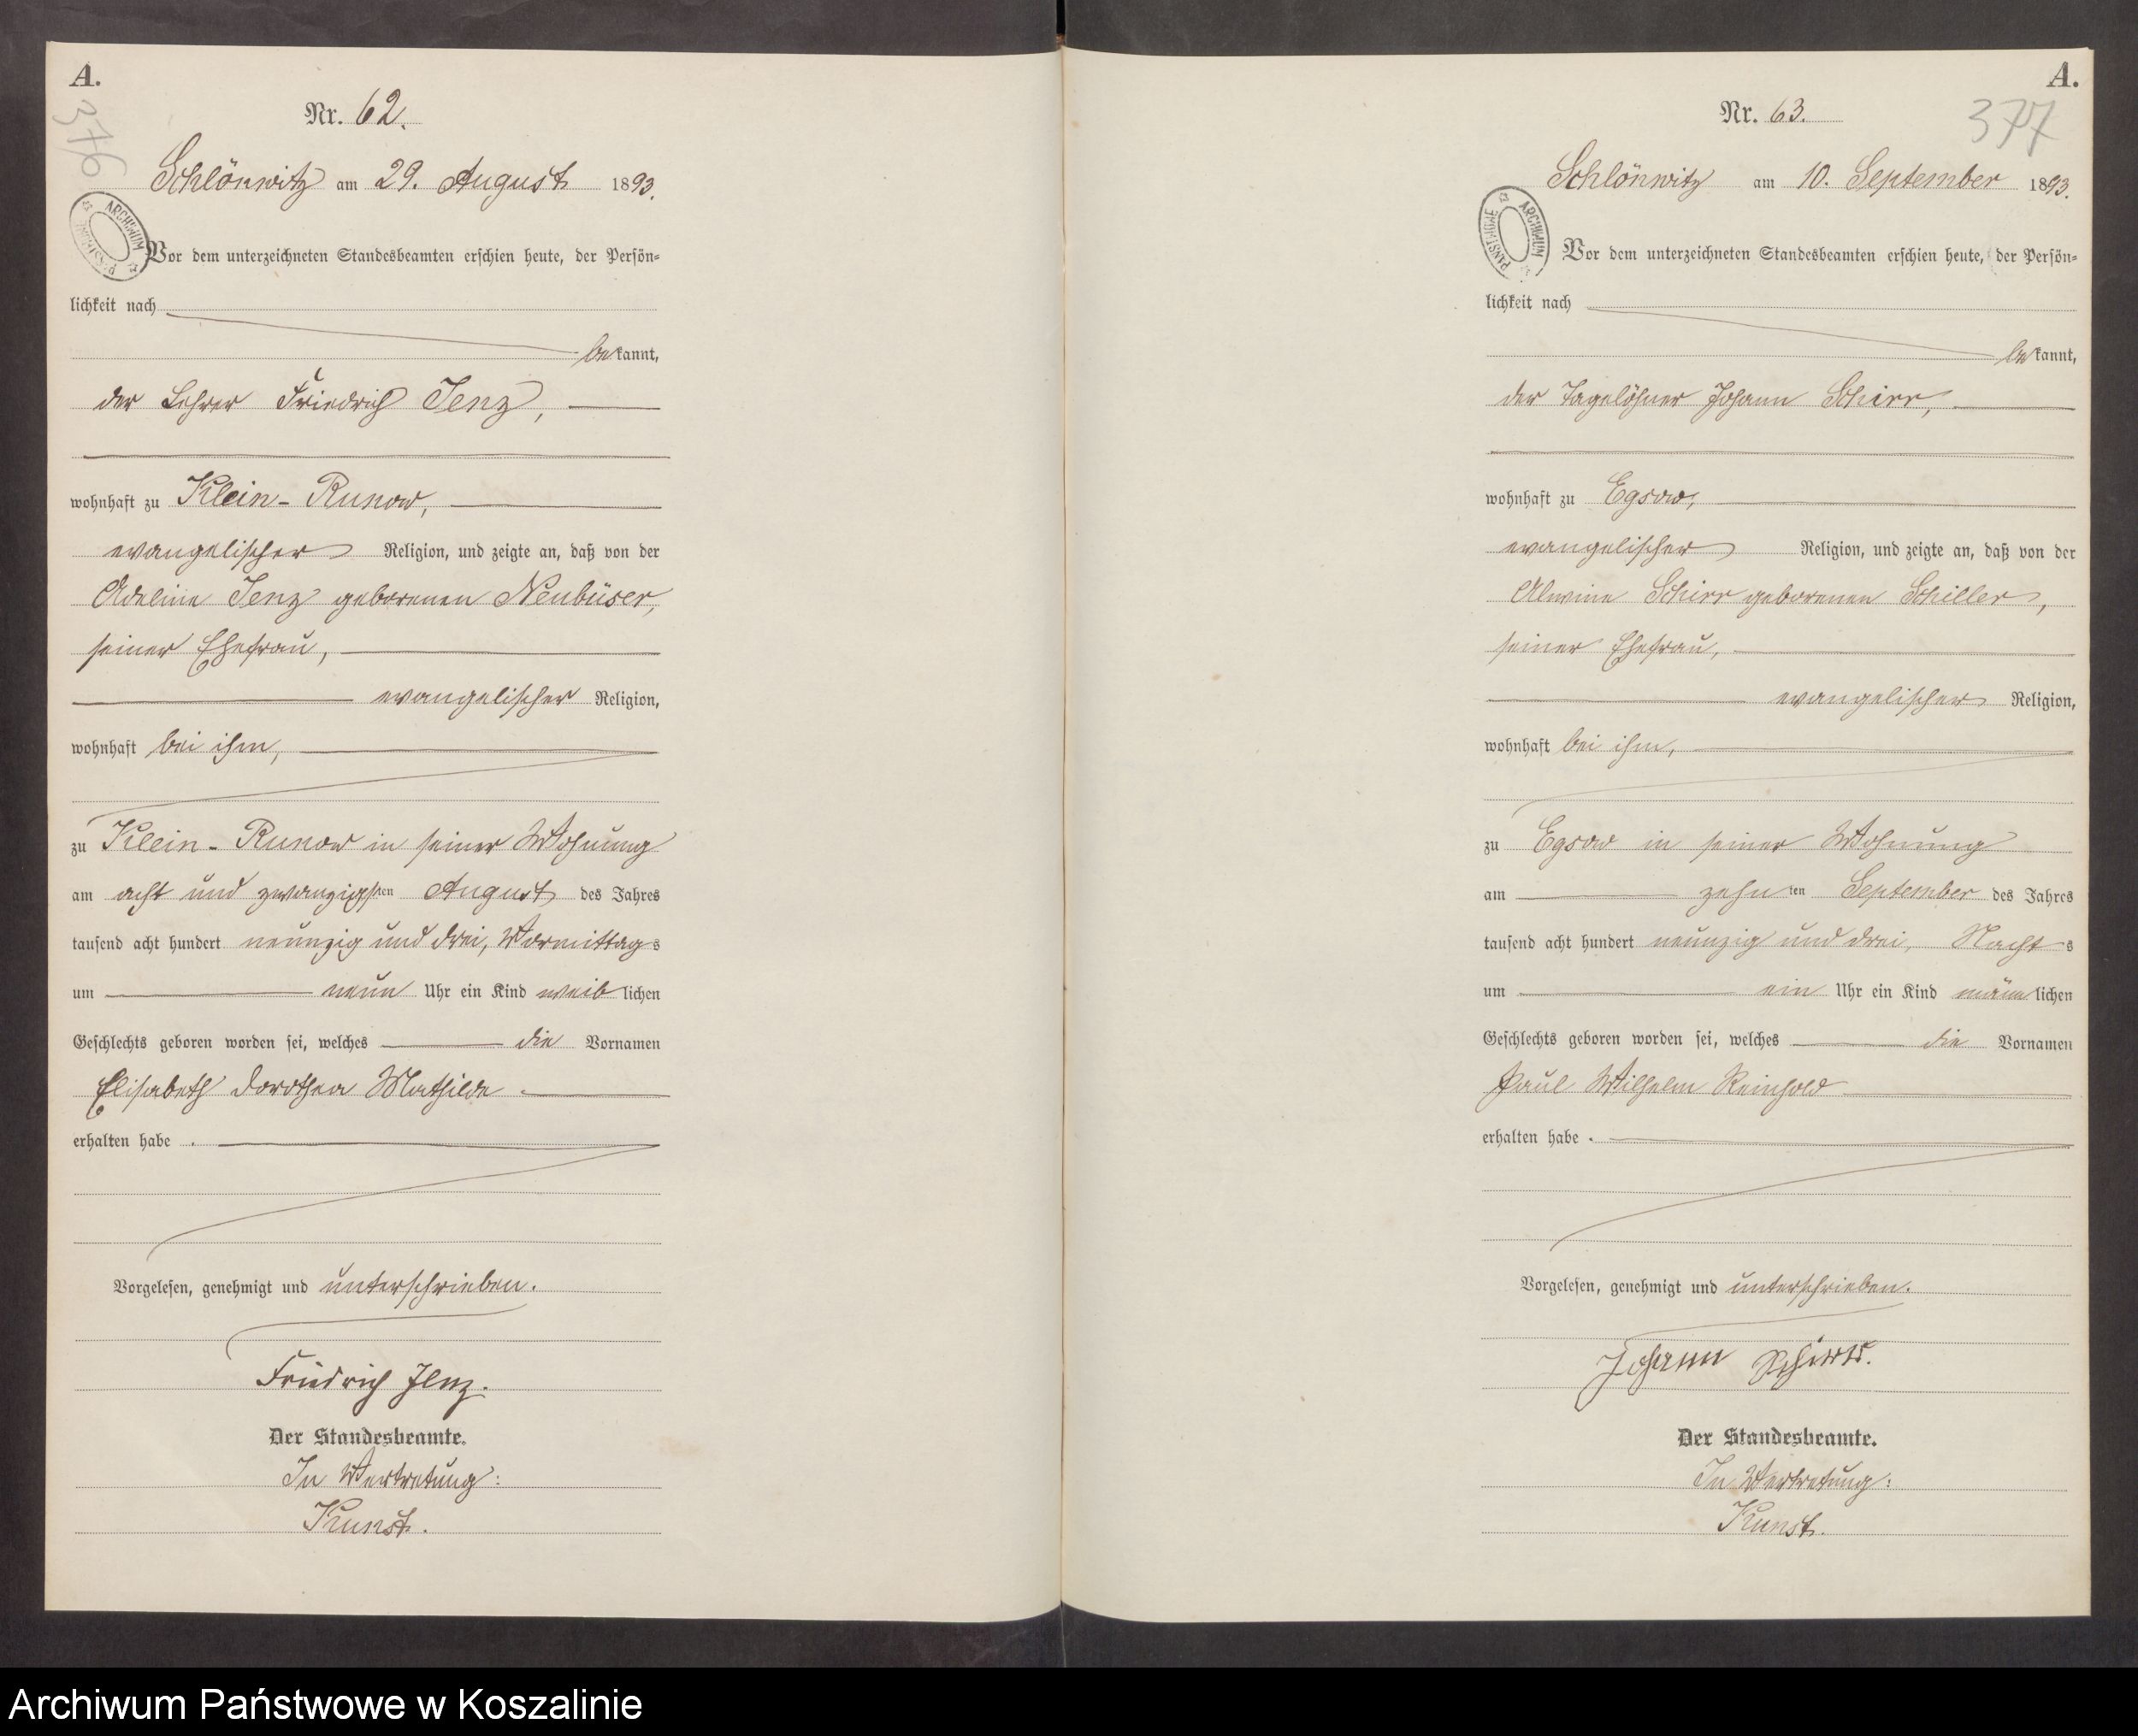 A.
376
Nr. 62.
Schlönwitz am 29. August 1893.
ARCHIWUM PAŃSTWOWE
Vor dem unterzeichneten Standesbeamten erschien heute, der Persön-
lichkeit nach
bekannt,
der Lehrer Friedrich Jenz,
wohnhaft zu Klein-Runow,
evangelischer Religion, und zeigte an, daß von der
Adeline Jenz geborenen Neubüser,
seiner Ehefrau,
evangelischer Religion,
wohnhaft bei ihm,
zu Klein-Runow in seiner Wohnung
am acht und zwanzigsten August des Jahres
tausend acht hundert neunzig und drei, Vormittags
um neun Uhr ein Kind weiblichen
Geschlechts geboren worden sei, welches die Vornamen
Elisabeth Dorothea Mathilde
erhalten habe.
Vorgelesen, genehmigt und unterschrieben.
Friedrich Jenz.
Der Standesbeamte.
In Vertretung:
Kunst.
A.
377
Nr. 63.
Schlönwitz am 10. September 1893.
ARCHIWUM PAŃSTWOWE
Vor dem unterzeichneten Standesbeamten erschien heute, der Persön-
lichkeit nach
bekannt,
der Tagelöhner Johann Schirr,
wohnhaft zu Egsow,
evangelischer Religion, und zeigte an, daß von der
Alwine Schirr geborenen Schiller,
seiner Ehefrau,
evangelischer Religion,
wohnhaft bei ihm,
zu Egsow in seiner Wohnung
am zehnten September des Jahres
tausend acht hundert neunzig und drei, Nachts
um ein Uhr ein Kind männlichen
Geschlechts geboren worden sei, welches die Vornamen
Paul Wilhelm Reinhold
erhalten habe.
Vorgelesen, genehmigt und unterschrieben.
Johann Schirr.
Der Standesbeamte.
In Vertretung:
Kunst.
Archiwum Państwowe w Koszalinie